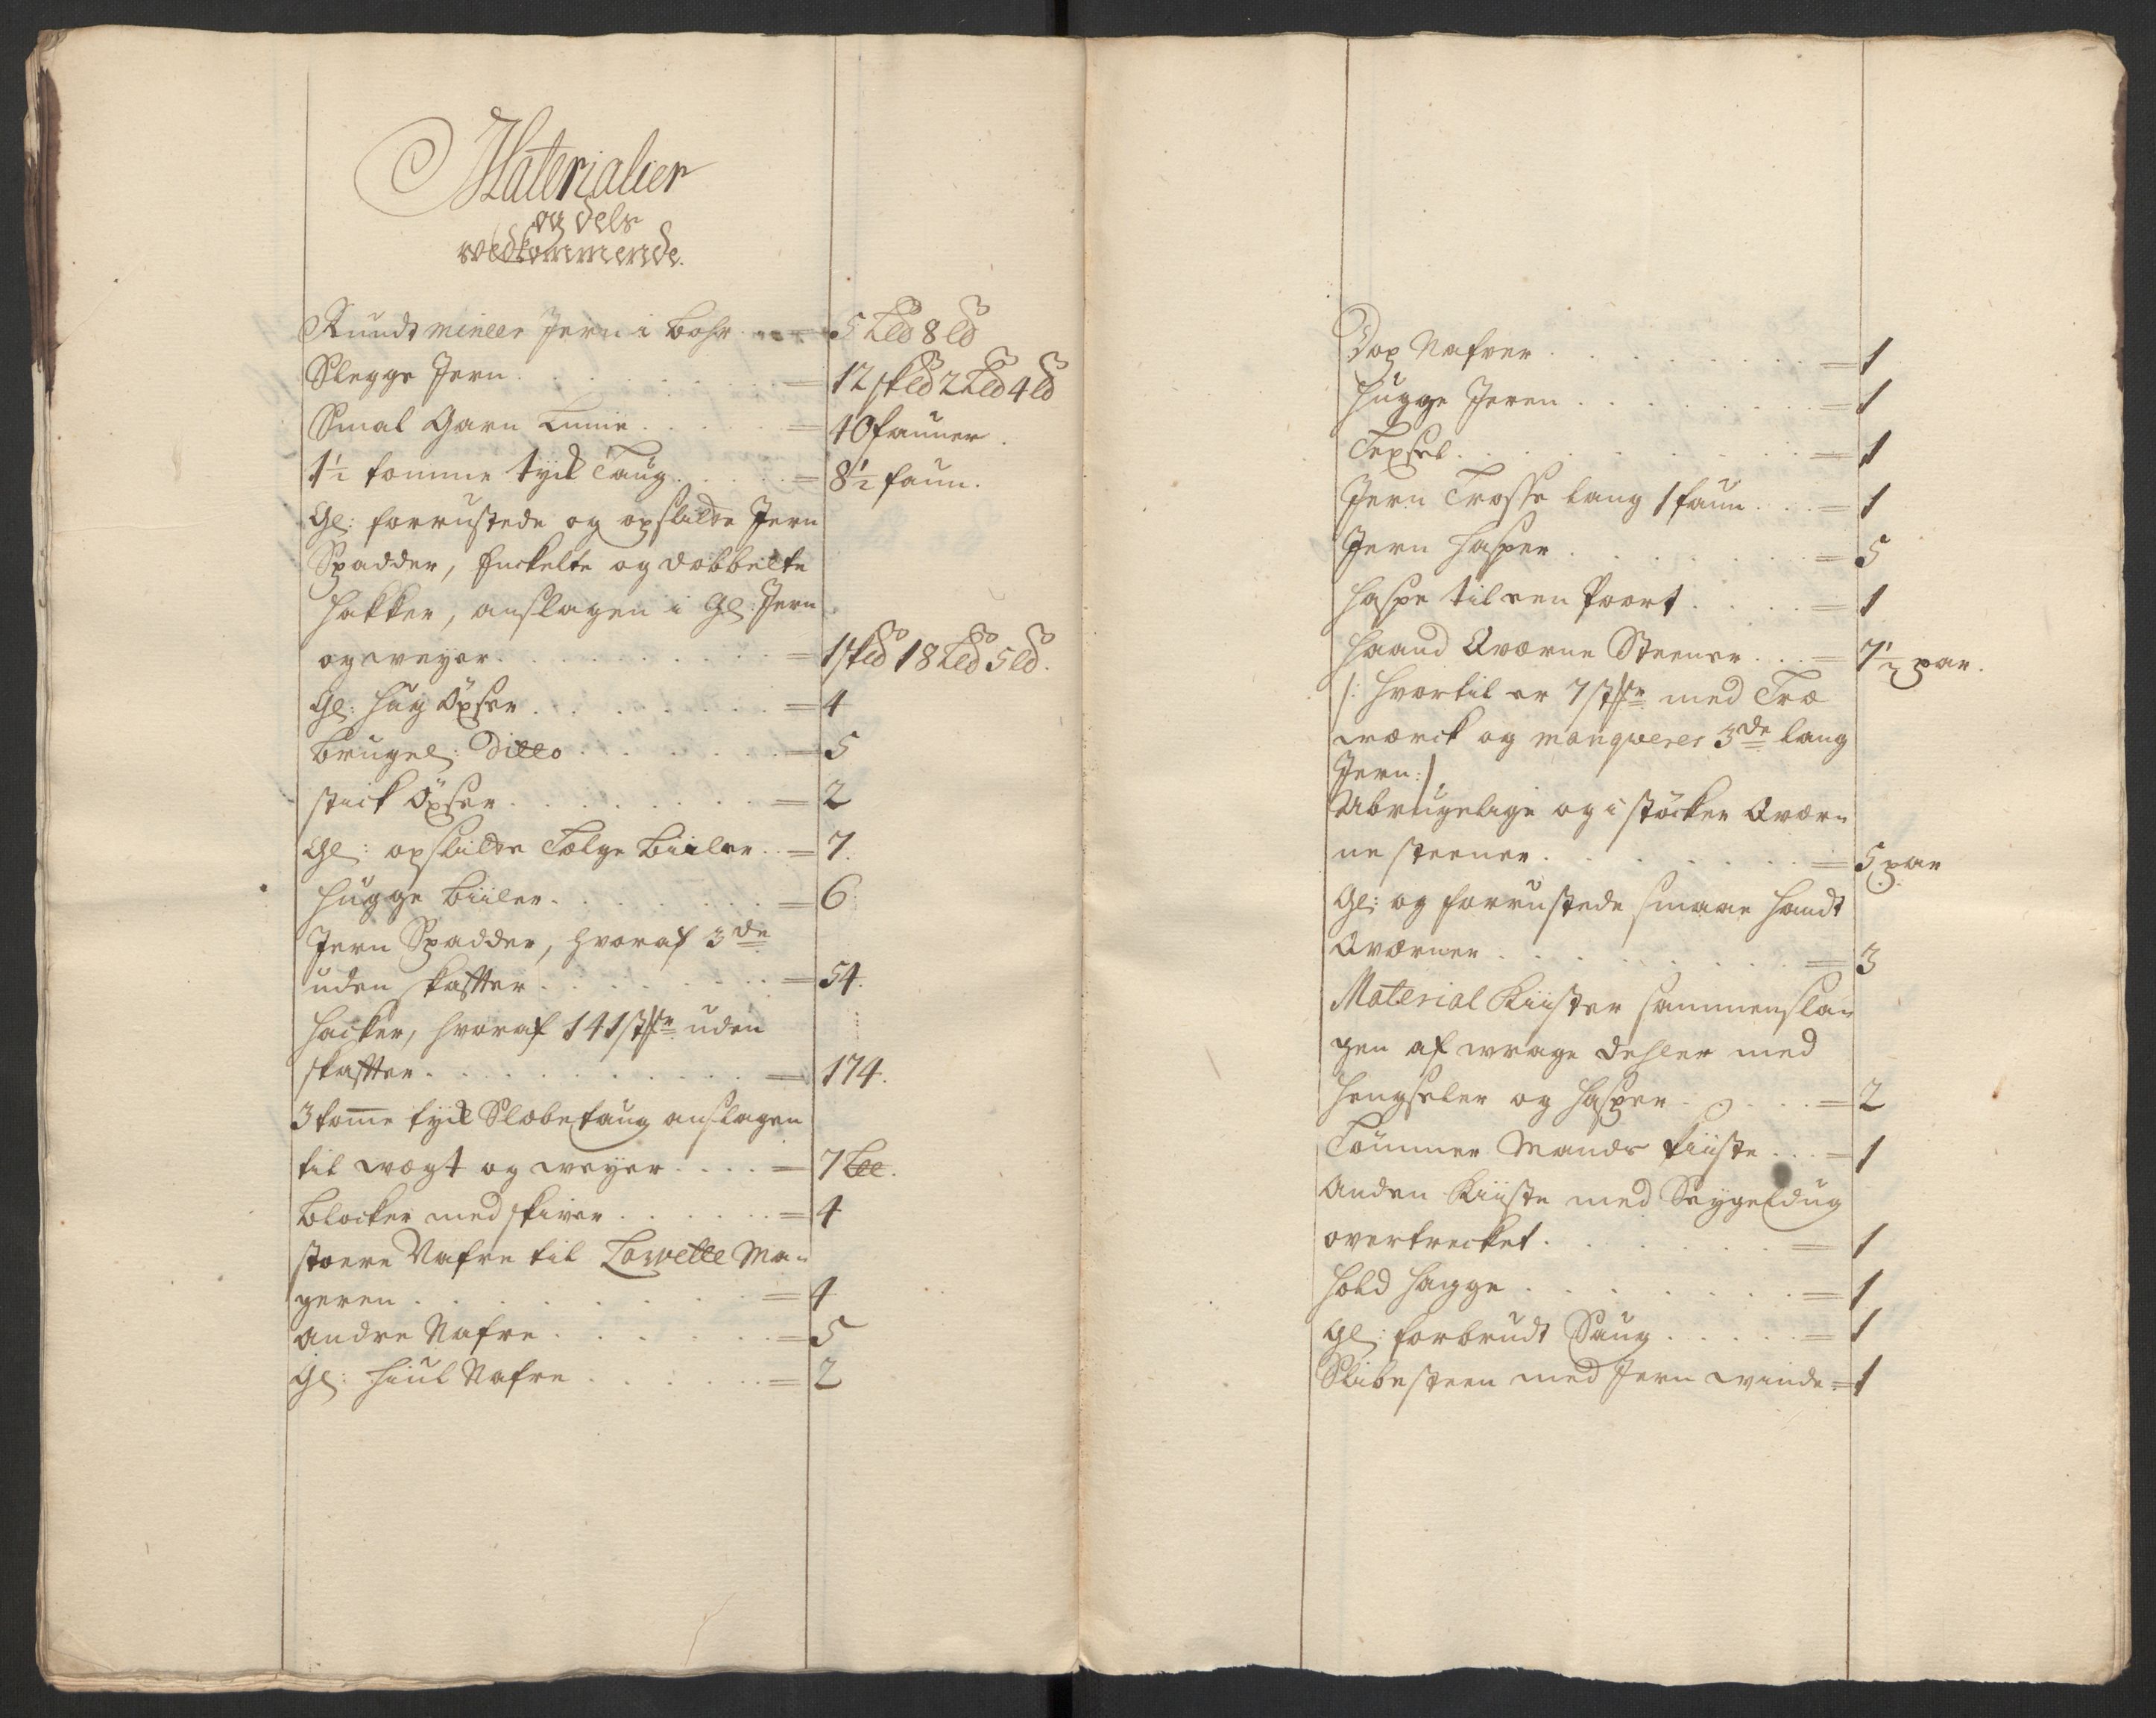 Materialier
og dets
vedkommende.
Rundt mineer Jern i bohr . . . = 5 L℔ 8 ℔
Slegge Jern . . . = 12 sk℔ 2 L℔ 4 ℔
Smal Garn Linnie . . . = 40 fauner.
1½ tomme tyck Taug . . . = 8½ faun.
Gl: forrustede og opslidte Jern
Spadder, Enckelte og dobbelte
Hakker, anslagen i Gl: Jern
og weyer . . . = 1 sk℔ 18 L℔ 5 ℔.
Gl: Hug Öxser . . . = 4
brugel: Ditto . . . = 5
stick Öxser . . . = 2
Gl: opslidte Telge biiler . . = 7.
Hugge biiler . . . = 6
Jern Spadder, hvoraf 3de
uden skaffter . . . = 54.
Hacker, hvoraf 141 stkr uden
skaffter . . . = 174.
3 tome tyck Slæbetaug anslagen
til vegt og weyer . . . = 7 L℔.
blocker med skiver . . . = 4
stoere Nafre til Lavette Ma-
geren . . . = 4
andre Nafre . . . = 5
Gl: Hiul Nafre . . . = 2
Dop Nafver . . . = 1
Hugge Jeren . . . = 1
Texsel . . . = 1
Jern Trosse lang 1 faun . . . = 1
Jern Hasper . . . = 5
Haspe til een Poort . . . = 1
Haand Qværne Steener . . . = 7½ par.
/: Hvortil er 7 stkr med Træ
værck og manqverer 3de lang
Jern :/
Ubrugelige og i stöcker Qvær-
ne steener . . . = 5 par
Gl: og forrustede smaae Handt
Qværner . . . = 3
Material Kiister sammensla-
gen af wrage dehler med
Hengseler og Hasper . . . = 2
Tömmer Mands kiiste . . . = 1
Anden Kiiste med Seygeldug
overtrecket . . . = 1
Hold Hagge . . . = 1
Gl: forbrudt Saug . . . = 1
Slibesteen med Jern vinde = 1